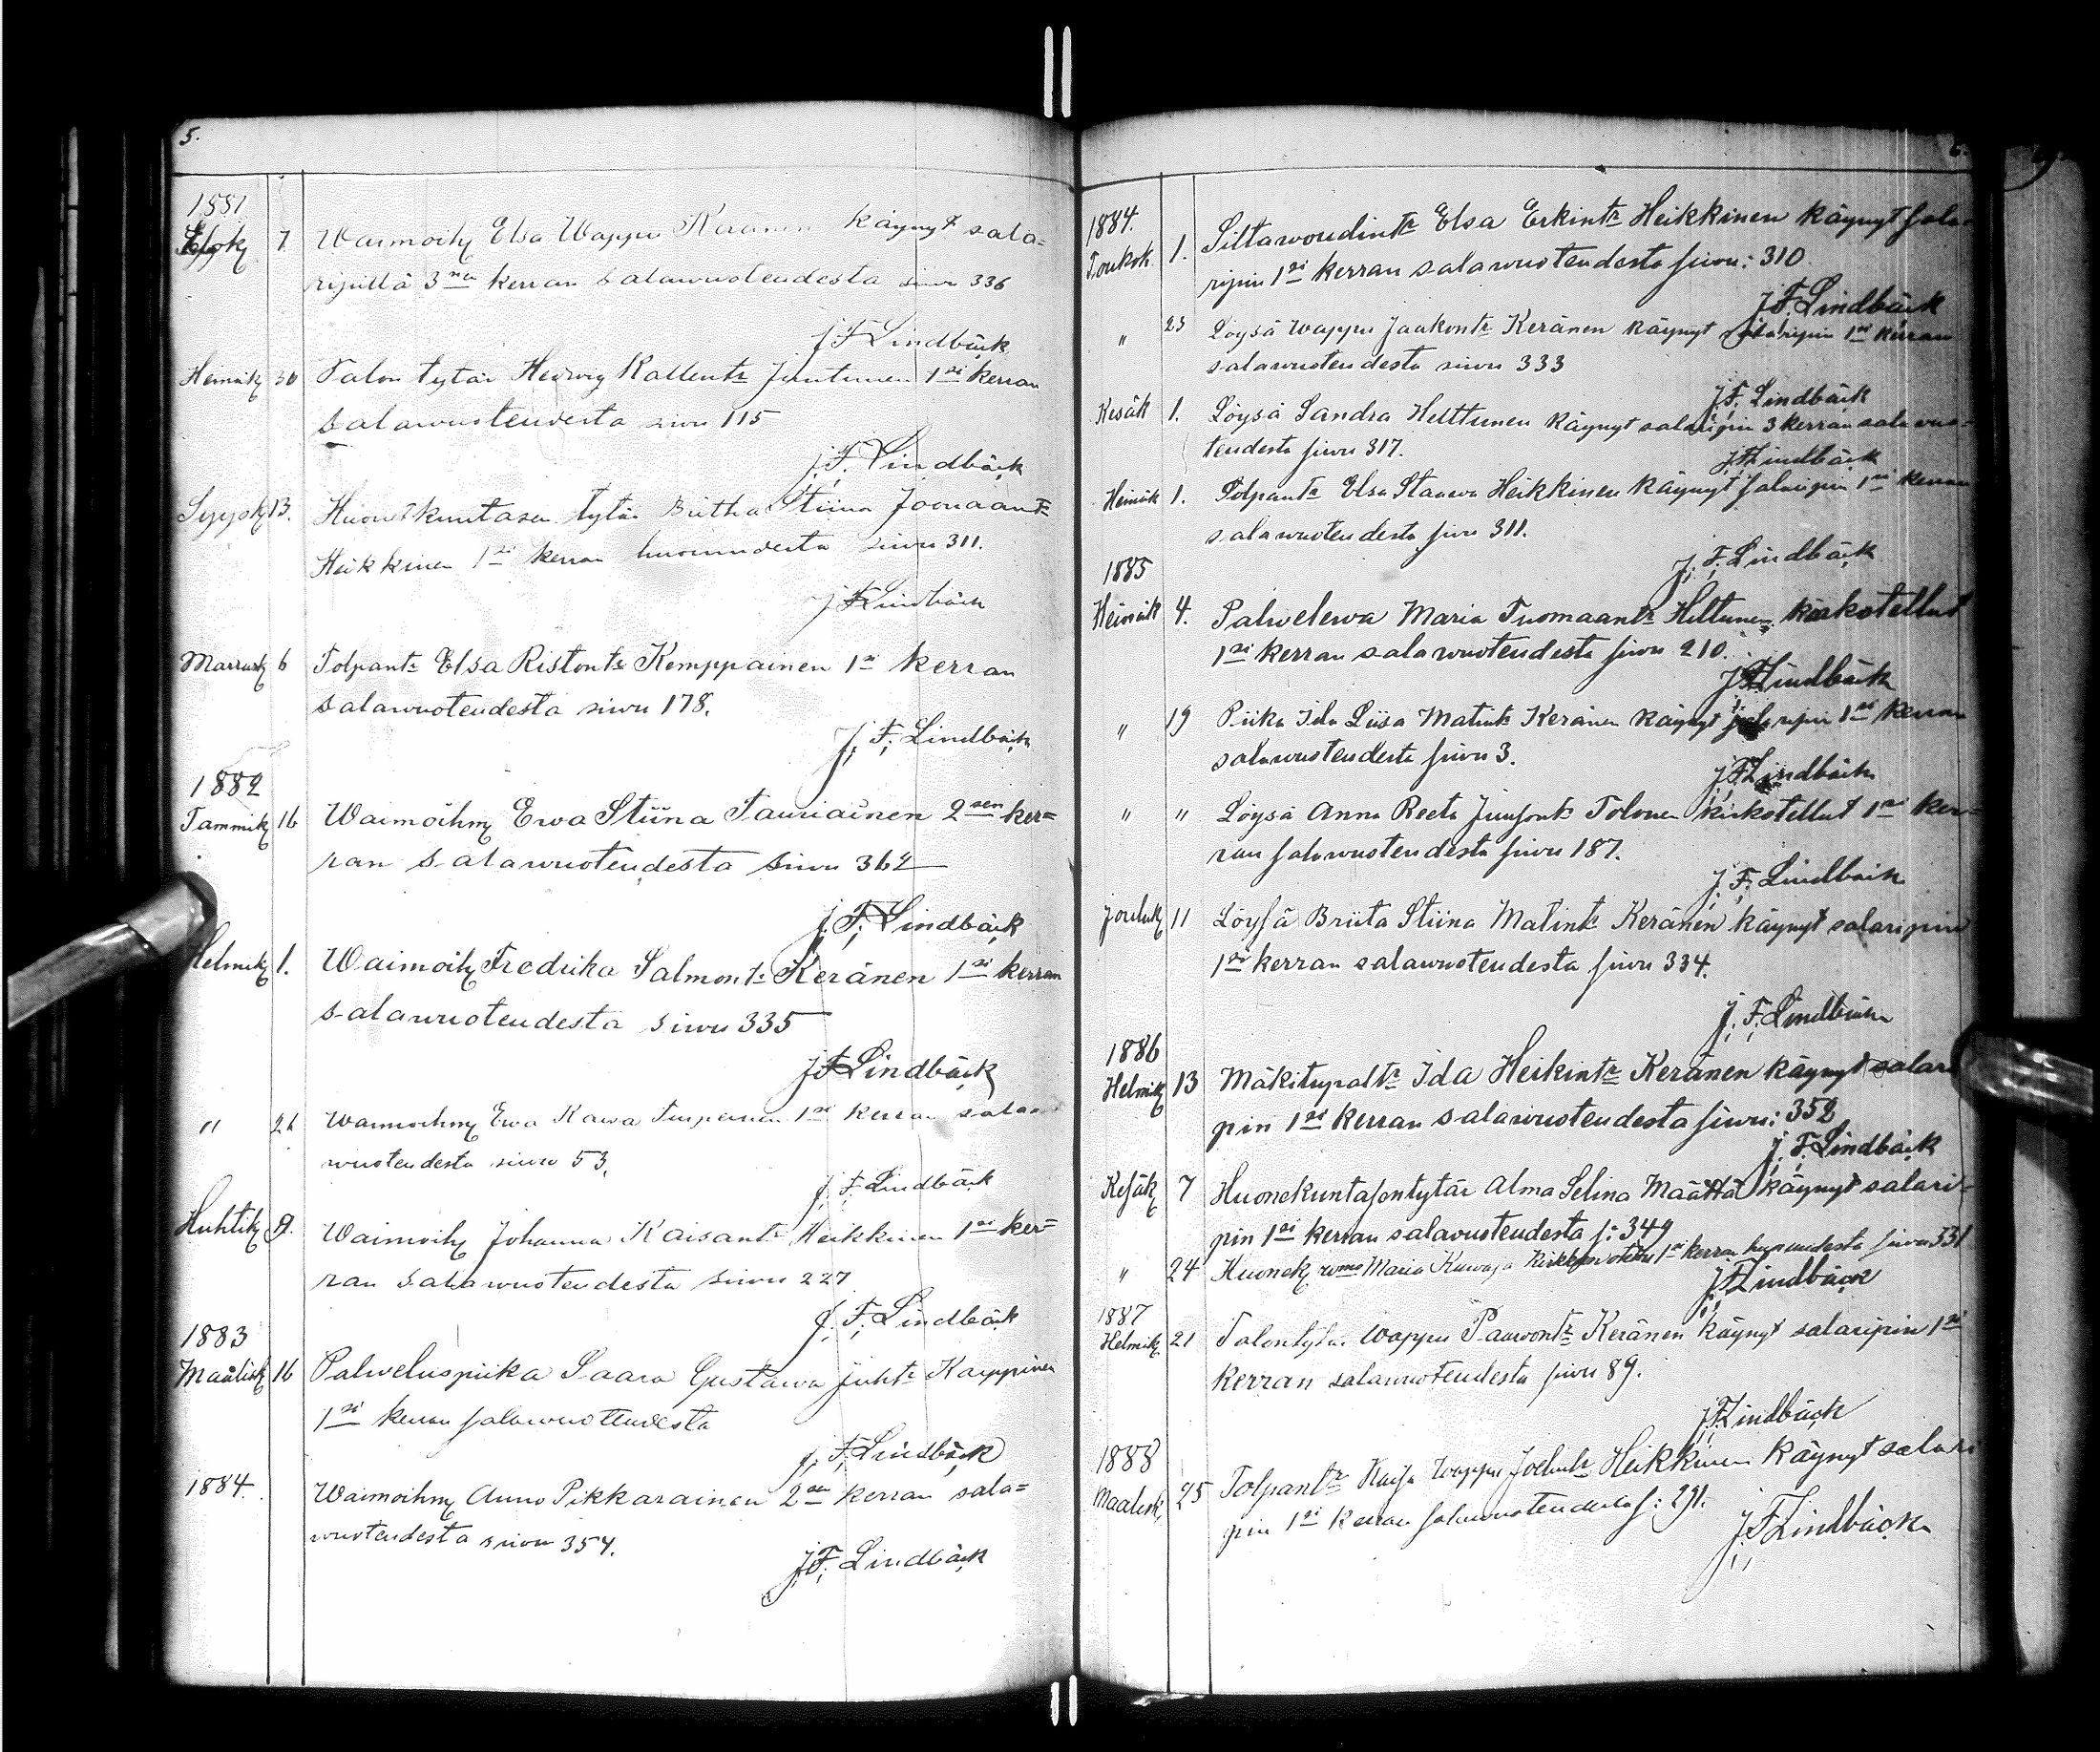 5.
1881
Elok 7 Waimoih Elsa Wappu Keränen käynyt sala=
ripillä 3na kerran salawuoteudesta siwu 336
J. F. Lindbäck
Heinäk 30 Talon tytär Hedwig Kallentr Juntunen 1si kerran
salawuoteudesta siwu 115
J. F. Lindbäck
Syysk 13. Huonekuntasen tytär Briitha Stiina Joonaantr
Heikkinen 1si kerran huoruudesta siwu 311.
J F Lindbäck
Marrask 6 Tolpantr Elsa Ristontr Kemppainen 1si kerran
salawuoteudesta siwu 178.
J. F. Lindbäck
1882
Tammik 16 Waimoihm Ewa Stiina Tauriainen 2sen ker=
ran salawuoteudesta siwu 362
J. F. Lindbäck
Helmik 1. Waimoih Fredrika Salmontr Keränen 1si kerran
salawuoteudesta siwu 335
J F Lindbäck
" 26 Waimoihm Ewa Kaisa 1si kerran sala=
wuoteudesta siwu 53.
J. F. Lindbäck
Huhtik 9. Waimoih Johanna Kaisantr Heikkinen 1si ker=
ran salawuoteudesta siwu 227
J. F. Lindbäck
1883
Maalisk 16 Palweluspiika Saara Gustawa Juhtr Kauppinen
1si kerran salawuoteudesta
J. F. Lindbäck
1884. Waimoihm Anno Pikkarainen 2sen kerran sala=
wuoteudesta siwu 354.
J. F. Lindbäck
6.
1884.
Toukok 1. Siltawoudintr Elsa Erkintr Heikkinen käynyt sala=
ripin 1si kerran salawuoteudesta siwu: 310
J. F. Lindbäck
" 23 Löysä Wappu Jaakontr Keränen käynyt salaripin 1si kerran
salawuoteudesta siwu 333
J. F. Lindbäck
Kesäk 1. Löysä Sandra Helttunen käynyt salaripin 3 kerran salawuo=
teudesta siwu 317.
J F Lindbäck
Heinäk 1. Tolpantr Elsa Staawa Heikkinen käynyt salaripin 1si kerran
salawuoteudesta siwu 311.
J. F. Lindbäck
1885
Heinäk 4. Palwelewa Maria Tuomaantr Heltunen kirkotellut
1si kerran salawuoteudesta siwu 210.
J F Lindbäck
" 19 Piika Ida Liisa Matintr Keränen käynyt salaripin 1si kerran
salawuoteudesta siwu 3.
J F Lindbäck
" " Löysä Anna Reeta Juusontr Tolonen kirkotellut 1si ker=
ran salawuoteudesta siwu 187.
J. F. Lindbäck
Jouluk 11 Löysä Briita Stiina Matintr Keränen käynyt salaripin
1si kerran salawuoteudesta siwu 334.
J. F. Lindbäck
1886
Helmik 13 Mäkitupaltr Ida Heikintr Keränen käynyt salari
pin 1si kerran salawuoteudesta siwu: 352
J. F. Lindbäck
Kesäk 7 Huonekuntasentytär Alma Selina Määttä käynyt salari=
pin 1si kerran salavuoteudesta s: 349
" 24 Huonek Maria 1si kerran huoruudesta siwu 331
J F Lindbäck
1887
Helmik 21 Talontytär Wappu Paawontr Keränen käynyt salaripin 1si
kerran salawuoteudesta siwu 89.
J F Lindbäck
1888
Maalisk 25 Tolpantr Kaisa Wappu Heikkinen käynyt salari
pin 1si kerran salawuoteudesta s: 291.
J F Lindbäck